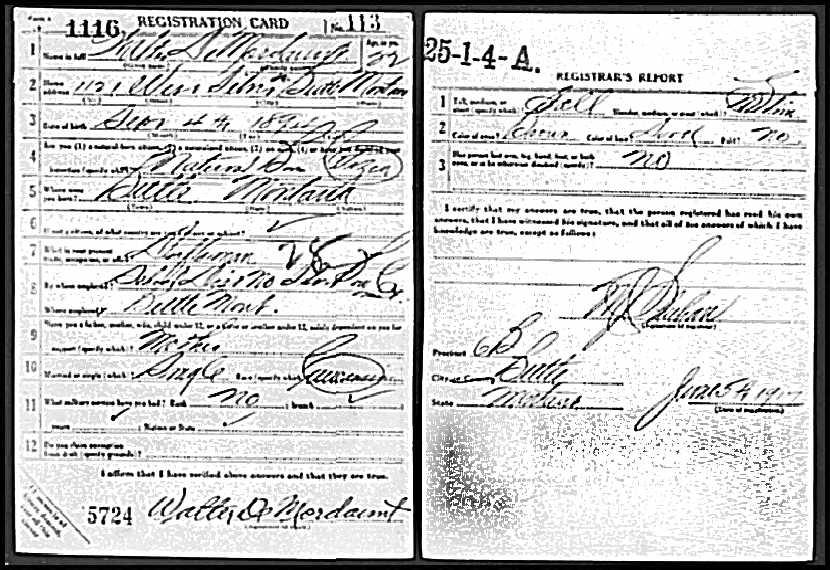 1116 REGISTRATION CARD No. 113
1 Name in full Age, in yrs. 22
2 Home address Butte Montana
3 Date of birth Sept 4 1894
4 Are you (1) a natural born citizen, (2) a naturalized citizen, (3) an alien, (4) or have you
Natural Born Citizen
5 Where were you born? Butte Montana
6 If not a citizen, of what country are you a citizen or subject?
7 What is your present trade, occupation, or office? 28
8 By whom employed?
Where employed? Butte Mont.
9 Have you a father, mother, wife, child under 12, or a sister or brother under 12, solely dependent on you for
support (specify which)? Mother
10 Married or single (which)? Single Race (specify which)? Caucasian
11 What military service have you had? Rank no ; branch
years ; Nation or State
12 Do you claim exemption
from draft (specify grounds)?
I affirm that I have verified above answers and that they are true.
5724 Walter D Mordaunt
25-1-4-A.
REGISTRAR'S REPORT
1 Tall, medium, or short (specify which)? Slender, medium, or stout (which)?
2 Color of eyes? Brown Color of hair? Bald? no.
3 Has person lost arm, leg, hand, foot, or both
eyes, or is he otherwise disabled (specify)? no
I certify that my answers are true, that the person registered has read his own
answers, that I have witnessed his signature, and that all of his answers of which I have
knowledge are true, except as follows:
(Signature of registrar)
Precinct 6B
City or Butte
State Montana June 5th 1917
(Date of registration)